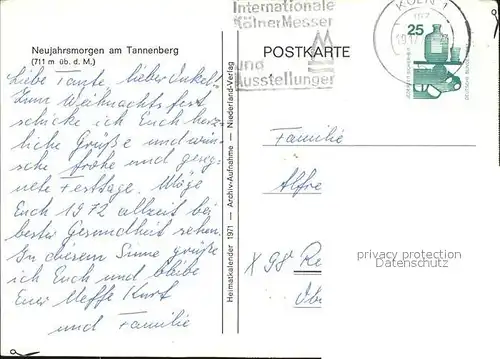 Neujahrsmorgen am Tannenberg
(711 m üb. d. M.)
Liebe Tante, lieber Onkel
Zum Weihnachtsfest
schicke ich Euch herz-
liche Grüße und wün-
sche frohe und geseg-
nete Festtage. Möge
Euch 1972 allzeit bei
bester Gesundheit sehen.
In diesem Sinne grüße
ich Euch und bleibe
Euer Neffe Kurt
und Familie
Heimatkalender 1971 — Archiv-Aufnahme — Niederland-Verlag
Internationale
Kölner Messen
und
Ausstellungen
POSTKARTE
KÖLN 1
25
DEUTSCHE BUNDESPOST
Familie
Alfre
X 98
privacy protection
Datenschutz